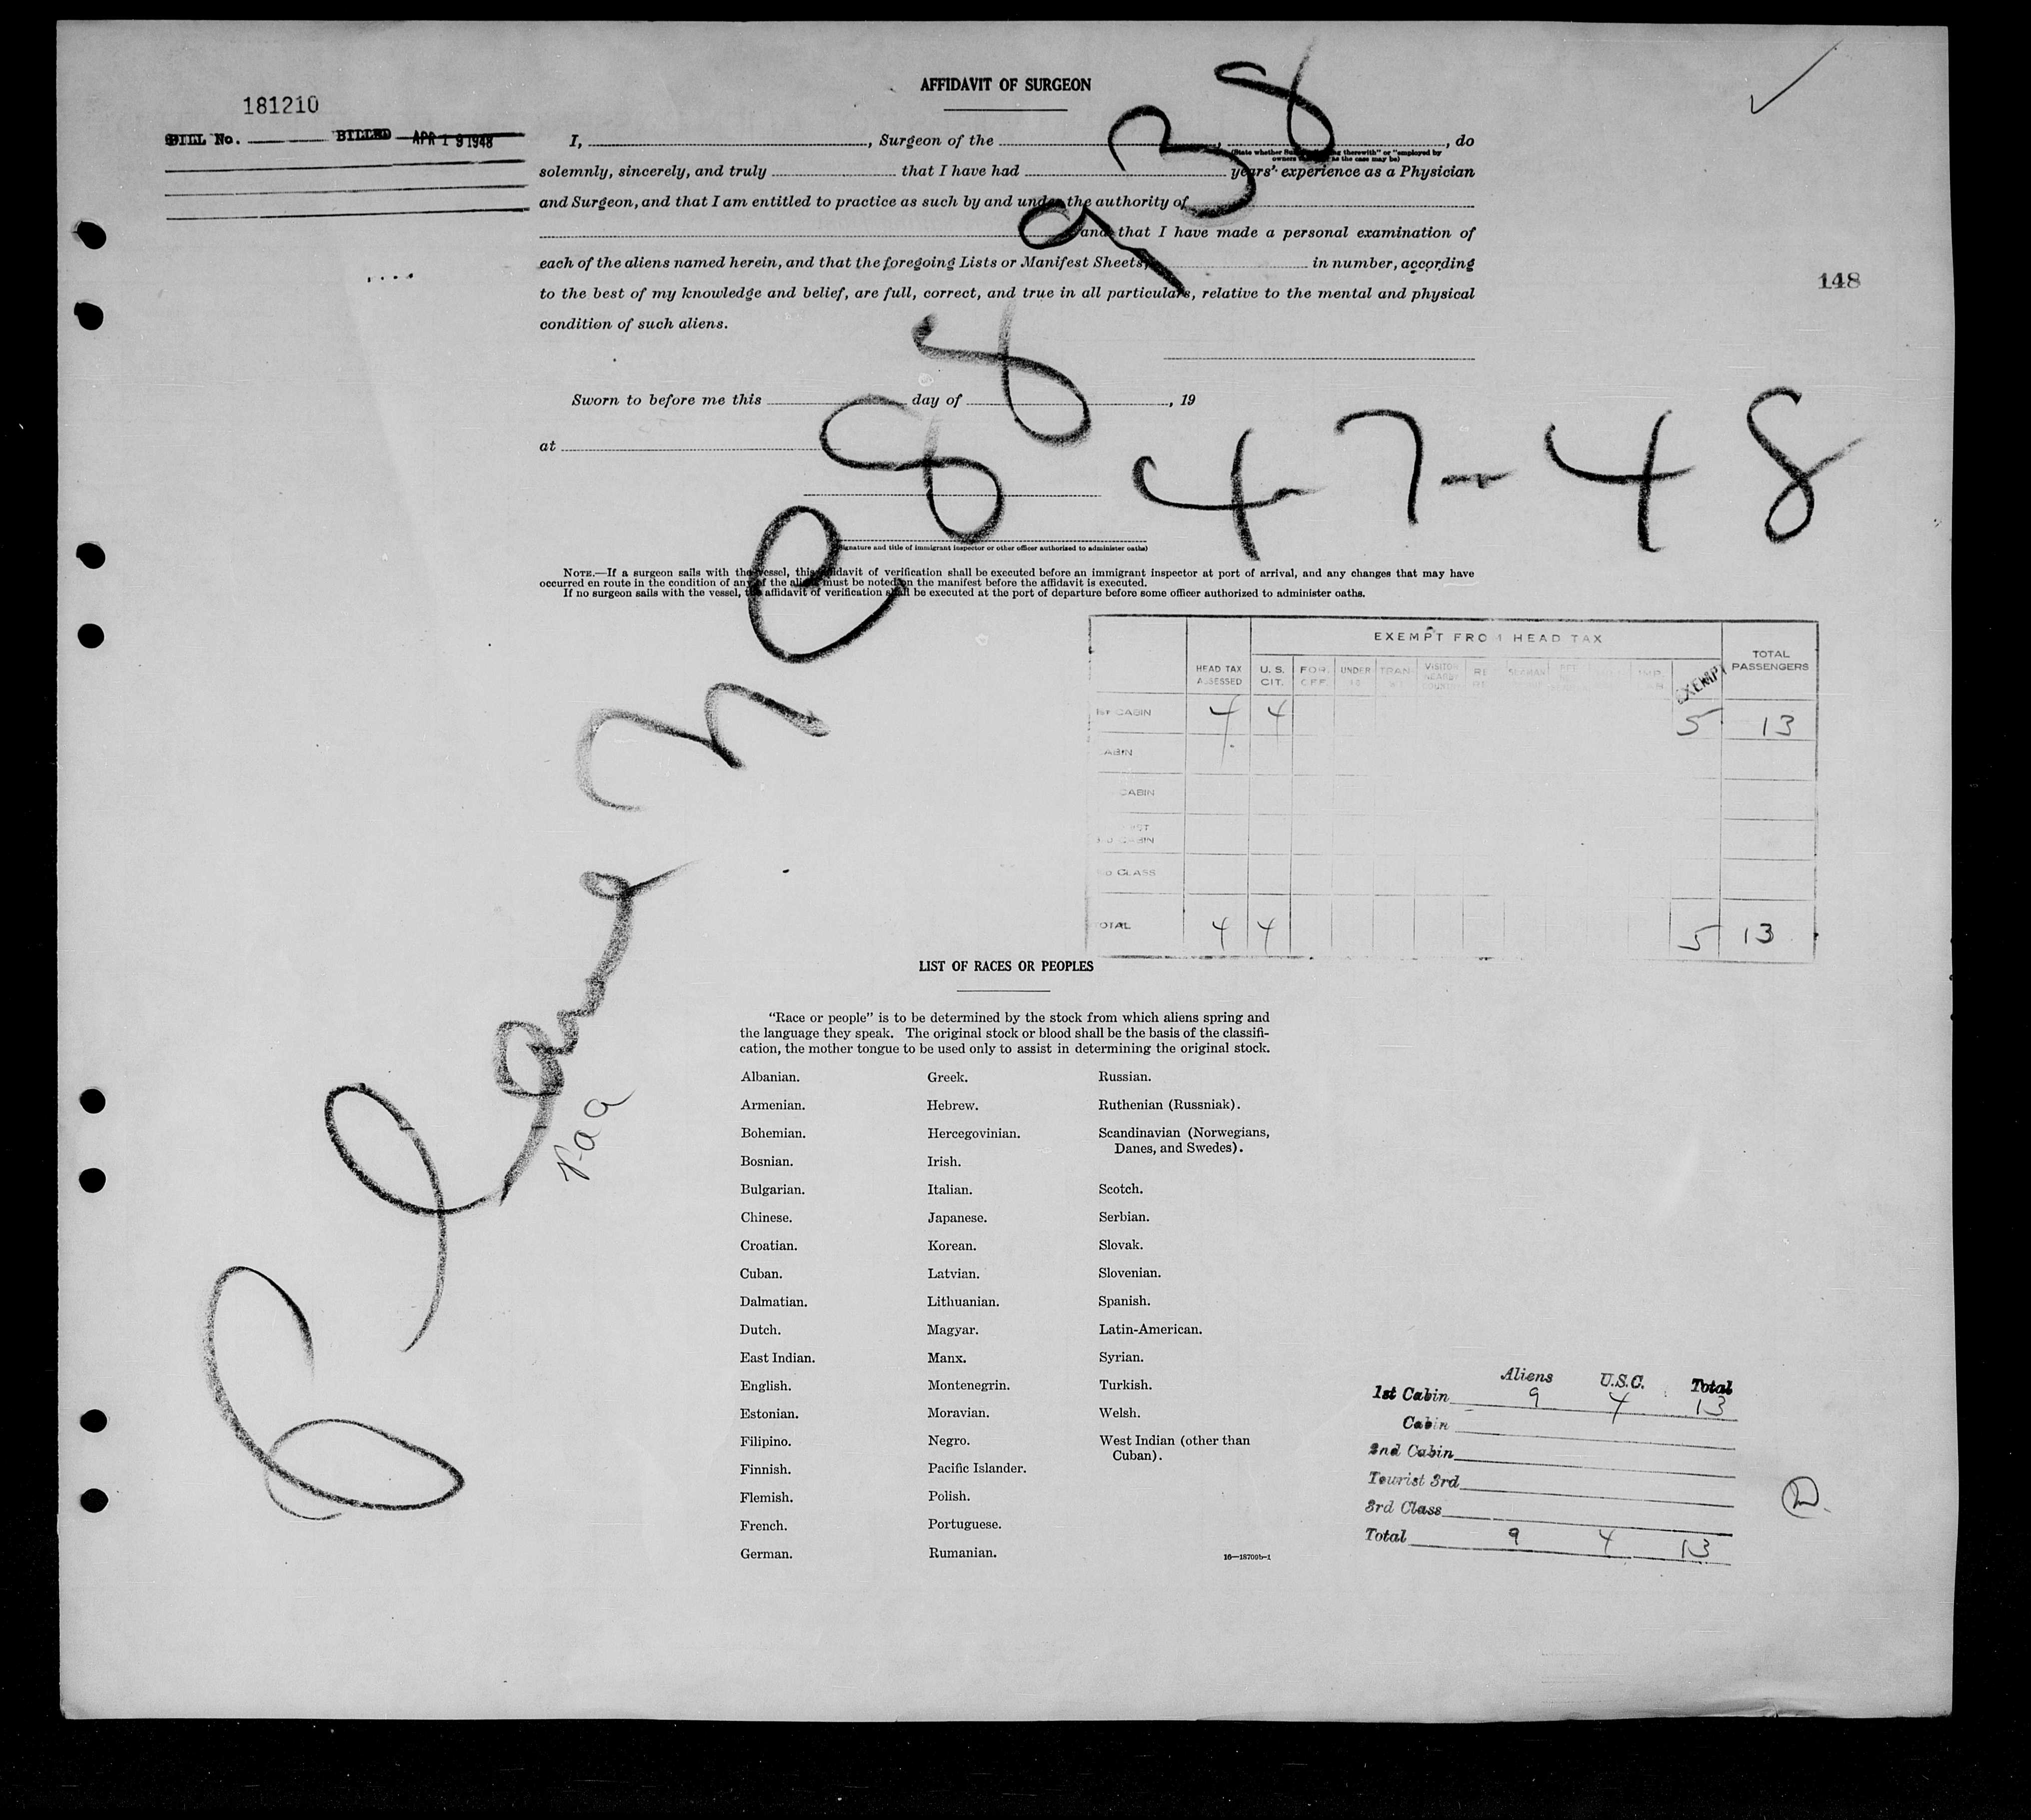 AFFIDAVIT OF SURGEON
181210
BILL No. BILLED APR 19 1948
I, , Surgeon of the , , do
(State whether owners as the case may be) "employed by
solemnly, sincerely, and truly that I have had years' experience as a Physician
and Surgeon, and that I am entitled to practice as such by and under the authority of
and that I have made a personal examination of
each of the aliens named herein, and that the foregoing Lists or Manifest Sheets, in number, according
to the best of my knowledge and belief, are full, correct, and true in all particulars, relative to the mental and physical
condition of such aliens.
148
Sworn to before me this day of , 19
at
(Signature and title of immigrant inspector or other officer authorized to administer oaths)
Plane NC 88938
4-7-48
paa
NOTE.—If a surgeon sails with the vessel, this affidavit of verification shall be executed before an immigrant inspector at port of arrival, and any changes that may have
occurred en route in the condition of any of the aliens must be noted on the manifest before the affidavit is executed.
If no surgeon sails with the vessel, the affidavit of verification shall be executed at the port of departure before some officer authorized to administer oaths.
EXEMPT FROM HEAD TAX
HEAD TAX ASSESSED U. S. CIT. FOR. OFF. UNDER 16 TRAN- VISITOR NEARBY EXEMPT TOTAL PASSENGERS
1st CABIN 4 4 5 13
CABIN
CABIN
CABIN
CLASS
TOTAL 4 4 5 13
LIST OF RACES OR PEOPLES
"Race or people" is to be determined by the stock from which aliens spring and
the language they speak. The original stock or blood shall be the basis of the classifi-
cation, the mother tongue to be used only to assist in determining the original stock.
Albanian.
Armenian.
Bohemian.
Bosnian.
Bulgarian.
Chinese.
Croatian.
Cuban.
Dalmatian.
Dutch.
East Indian.
English.
Estonian.
Filipino.
Finnish.
Flemish.
French.
German.
Greek.
Hebrew.
Hercegovinian.
Irish.
Italian.
Japanese.
Korean.
Latvian.
Lithuanian.
Magyar.
Manx.
Montenegrin.
Moravian.
Negro.
Pacific Islander.
Polish.
Portuguese.
Rumanian.
Russian.
Ruthenian (Russniak).
Scandinavian (Norwegians,
Danes, and Swedes).
Scotch.
Serbian.
Slovak.
Slovenian.
Spanish.
Latin-American.
Syrian.
Turkish.
Welsh.
West Indian (other than
Cuban).
16—18709b-1
Aliens U.S.C. Total
1st Cabin 9 4 13
Cabin
2nd Cabin
Tourist 3rd
3rd Class
Total 9 4 13